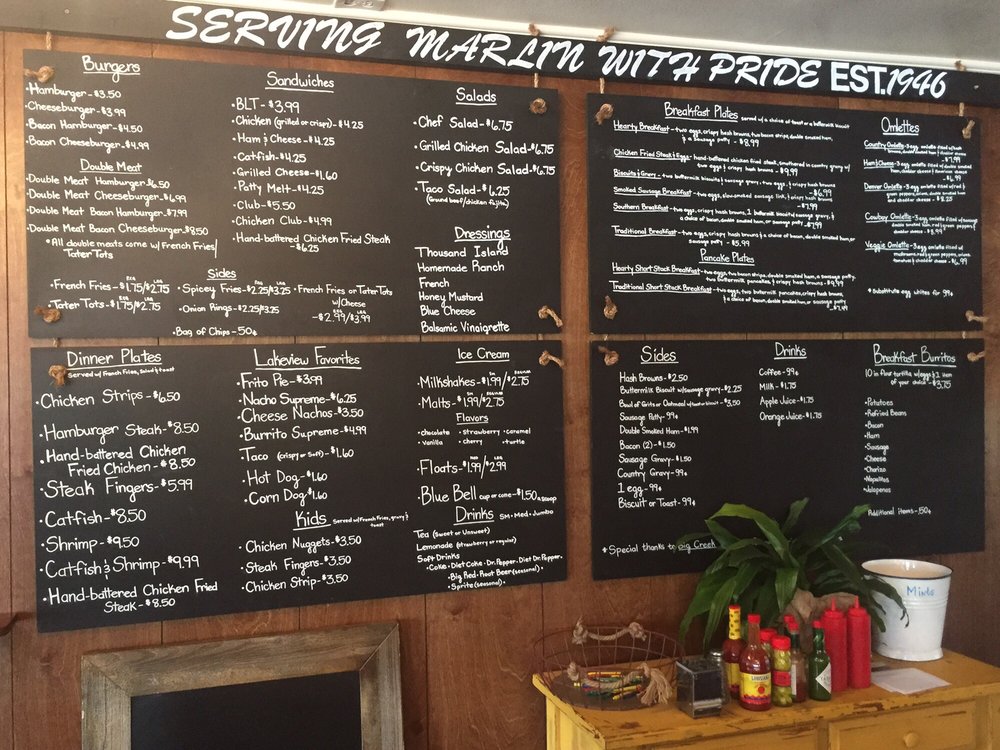 SERVING MARLIN WITH PRIDE EST. 1946
Burgers
•Hamburger - $3.50
Cheeseburger - $3.99
Bacon Hamburger - $4.50
Bacon Cheeseburger - $4.99
Double Meat
•Double Meat Hamburger - $6.50
•Double Meat Cheeseburger - $6.99
•Double Meat Bacon Hamburger - $7.99
•Double Meat Bacon Cheeseburger - $8.50
*All double meats come w/ French Fries/
Tater Tots
Sandwiches
•BLT - $3.99
•Chicken (grilled or crispy) - $4.25
•Ham & Cheese - $4.25
•Catfish - $4.25
•Grilled Cheese - $1.60
•Patty Melt - $4.25
•Club - $5.50
•Chicken Club - $4.99
•Hand-battered Chicken Fried Steak
- $6.25
Salads
•Chef Salad - $6.75
•Grilled Chicken Salad - $6.75
•Crispy Chicken Salad - $6.75
•Taco Salad - $6.25
(Ground beef/chicken fajita)
Dressings
Thousand Island
Homemade Ranch
French
Honey Mustard
Blue Cheese
Balsamic Vinaigrette
Sides
•French Fries - $1.75/$2.75
•Tater Tots - $1.75/$2.75
•Spicey Fries - $2.25/$3.25
•Onion Rings - $2.25/$3.25
•Bag of Chips - 50¢
•French Fries or Tater Tots
w/Cheese
- $2.99/$3.99
Breakfast Plates served w/ a choice of toast or a buttermilk biscuit
Hearty Breakfast - two eggs, crispy hash browns, two bacon strips, double smoked ham,
& a sausage patty - $8.99
Chicken Fried Steak & Eggs - hand-battered chicken fried steak, smothered in country gravy w/
two eggs & crispy hash browns - $9.99
Biscuits & Gravy - two buttermilk biscuits w/sausage gravy, two eggs, & crispy hash browns
- $6.99
Smoked Sausage Breakfast - two eggs, slow-smoked sausage link, & crispy hash browns
- $7.99
Southern Breakfast - two eggs, crispy hash browns, 1 buttermilk biscuit w/ sausage gravy, &
a choice of bacon, double smoked ham, or sausage patty - $7.99
Traditional Breakfast - two eggs, crispy hash browns & a choice of bacon, double smoked ham, or
sausage patty - $5.99
Pancake Plates
Hearty Short Stack Breakfast - two eggs, two bacon strips, double smoked ham, a sausage patty
two buttermilk pancakes, & crispy hash browns - $9.99
Traditional Short Stack Breakfast - two eggs, two buttermilk pancakes, crispy hash browns
& a choice of bacon, double smoked ham, or sausage patty
- $7.49
Omlettes
Country Omlette - 3 egg omlette filled w/ hash
browns, double smoked ham & cheddar cheese
- $7.99
Ham & Cheese - 3 egg omlette filled w/ double smoked
ham, cheddar cheese & american cheese
- $6.99
Denver Omlette - 3 egg omlette filled w/ red &
green peppers, onions, double smoked ham
and cheddar cheese - $8.25
Cowboy Omlette - 3 egg omlette filled w/ sausage
double smoked ham, bacon, red/green peppers &
cheddar cheese - $8.99
Veggie Omlette - 3 egg omlette filled w/
mushrooms, red & green peppers, onions
tomatoes & cheddar cheese - $6.99
* Substitute egg whites for 99¢
Dinner Plates
Served w/ French Fries, Salad & toast
•Chicken Strips - $6.50
•Hamburger Steak - $8.50
•Hand-battered Chicken
Fried Chicken - $8.50
•Steak Fingers - $5.99
•Catfish - $8.50
•Shrimp - $9.50
•Catfish & Shrimp - $9.99
•Hand-battered Chicken Fried
Steak - $8.50
Lakeview Favorites
•Frito Pie - $3.99
•Nacho Supreme - $6.25
•Cheese Nachos - $3.50
•Burrito Supreme - $4.99
•Taco (crispy or soft) - $1.60
•Hot Dog - $1.60
•Corn Dog $1.60
Kids Served w/ French Fries, gravy &
toast
•Chicken Nuggets - $3.50
•Steak Fingers - $3.50
•Chicken Strip - $3.50
Ice Cream
•Milkshakes - $1.99/$2.75
•Malts - $1.99/$2.75
Flavors
•chocolate •strawberry •caramel
•vanilla •cherry •turtle
•Floats - $1.99/$2.99
•Blue Bell cup or cone - $1.50 a scoop
Drinks SM • MED • Jumbo
Tea (Sweet or Unsweet)
Lemonade (strawberry or regular)
Soft Drinks
•Coke • Diet Coke • Dr. Pepper • Diet Dr. Pepper
•Big Red • Root Beer (seasonal) •
•Sprite (seasonal) •
Sides
Hash Browns - $2.50
Buttermilk Biscuit w/sausage gravy - $2.25
Bowl of Grits or Oatmeal w/ butter biscuit - $3.50
Sausage Patty - 99¢
Double Smoked Ham - $1.99
Bacon (2) - $1.50
Sausage Gravy - $1.50
Country Gravy - 99¢
1 egg - 99¢
Biscuit or Toast - 99¢
*Special thanks to Big Creek
Drinks
Coffee - 99¢
Milk - $1.75
Apple Juice - $1.75
Orange Juice - $1.75
Breakfast Burritos
10 in flour tortilla w/eggs & 1 item
of your choice - $3.75
•Potatoes
•Refried Beans
•Bacon
•Ham
•Sausage
•Cheese
•Chorizo
•Nopalitos
•Jalapenos
Additional Items - .50¢
Mints